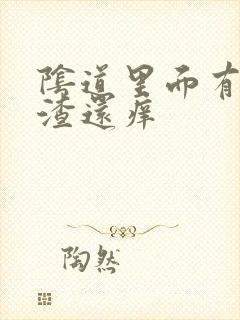 陰道里面有
渣還痒
陶然